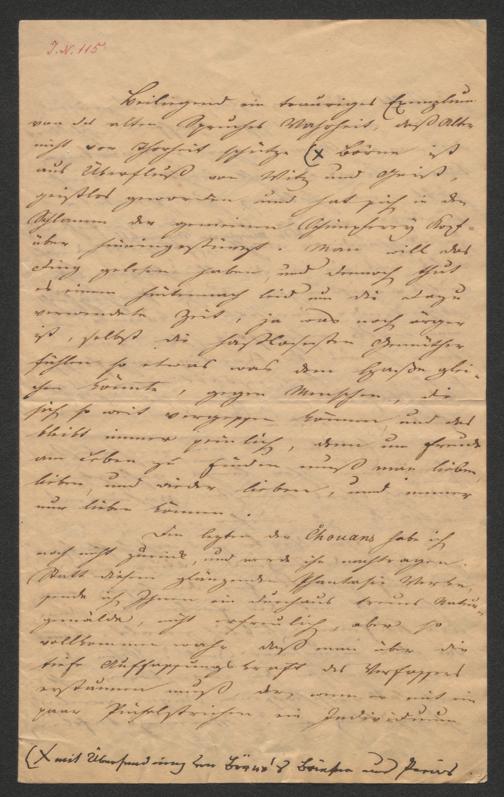 J.N. 115
Beiliegend ein trauriges Exemplum
von des alten Spruches Wahrheit, daß Alter
nicht vor Thorheit schütze (x Börne ist
aus Überfluß von Witz und Geist,
geistlos geworden und hat sich in den
Schlamm der gemeinen Schimpferey kopf-
über hineingestürzt. Man will das
Ding gelesen haben und dennoch thut
es einem hinternach leid um die dazu
verwendete Zeit, ja was noch ärger
ist, selbst die haßlosesten Gemüther
fühlen so etwas was dem Haße glei-
chen könnte, gegen Menschen, die
sich so weit vergessen können, und das
bleibt immer peinlich, denn um Freude
am Leben zu finden muß man lieben
lieben, und wieder lieben, und immer
nur lieben können.
Den letzten der Chouans habe ich
noch nicht zurück, und werde ihn nachtragen.
Statt diesen glänzenden Phantasie Werke,
sende ich Ihnen ein durchaus treues Natur-
gemälde, nicht erfreulich, aber so
vollkommen wahr daß man über die
tiefe Auffassungskraft des Verfassers
erstaunen muß der, wenn er mit ein
paar Pinselstrichen ein Individuum
(x mit Übersendung von Börne's Briefen aus Paris